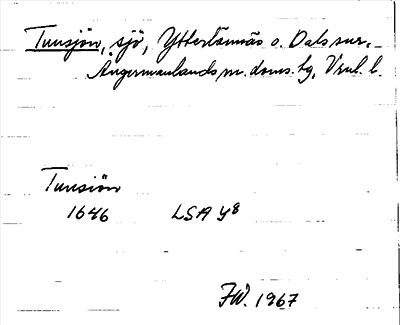 Tunsjön, sjö, Ytterlännäs o. Dals snr,
Ångermanlands m. doms. hg, Vnl. l.
Tunsiön
1646 LSA Y8
FW. 1967